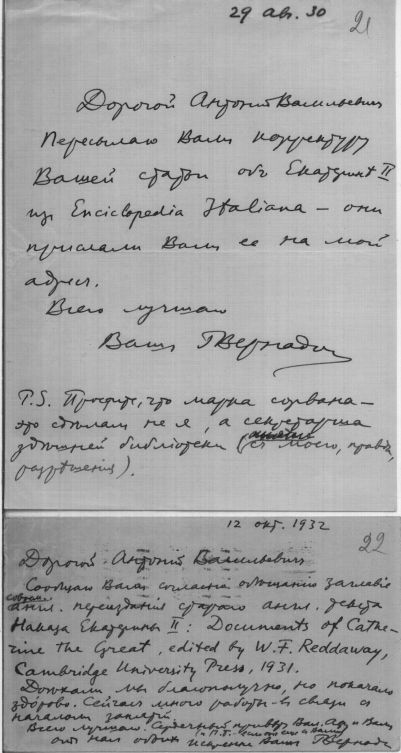 29 авг. 30
21
Дорогой Антоний Васильевич
Пересылаю Вамъ корректуру
Вашей статьи объ Екатеринѣ II
из Enciclopedia Italiana — они
прислали Вамъ ее на мой
адрес.
Всего лучшаго
Вашъ ГВернадскій
P.S. Простите, что марка сорвана —
это сдѣлалъ не я, а секретарша
здѣшней библіотеки (съ моего, правда,
разрѣшенія).
12 окт. 1932
22
Дорогой Антоній Васильевич
Сообщаю Вамъ согласно обѣщанію заглавіе
англ. переизданія стараго англ. текста
Наказа Екатерины II: Documents of Cathe-
rine the Great, edited by W. F. Reddaway,
Cambridge University Press, 1931.
Доѣхали мы благополучно, но покачало
здорово. Сейчас много работы в связи с
началом занятій.
Всего лучшаго. Сердечный привѣт и Вам
от нас обоих искренне Вашъ ГВернадскій